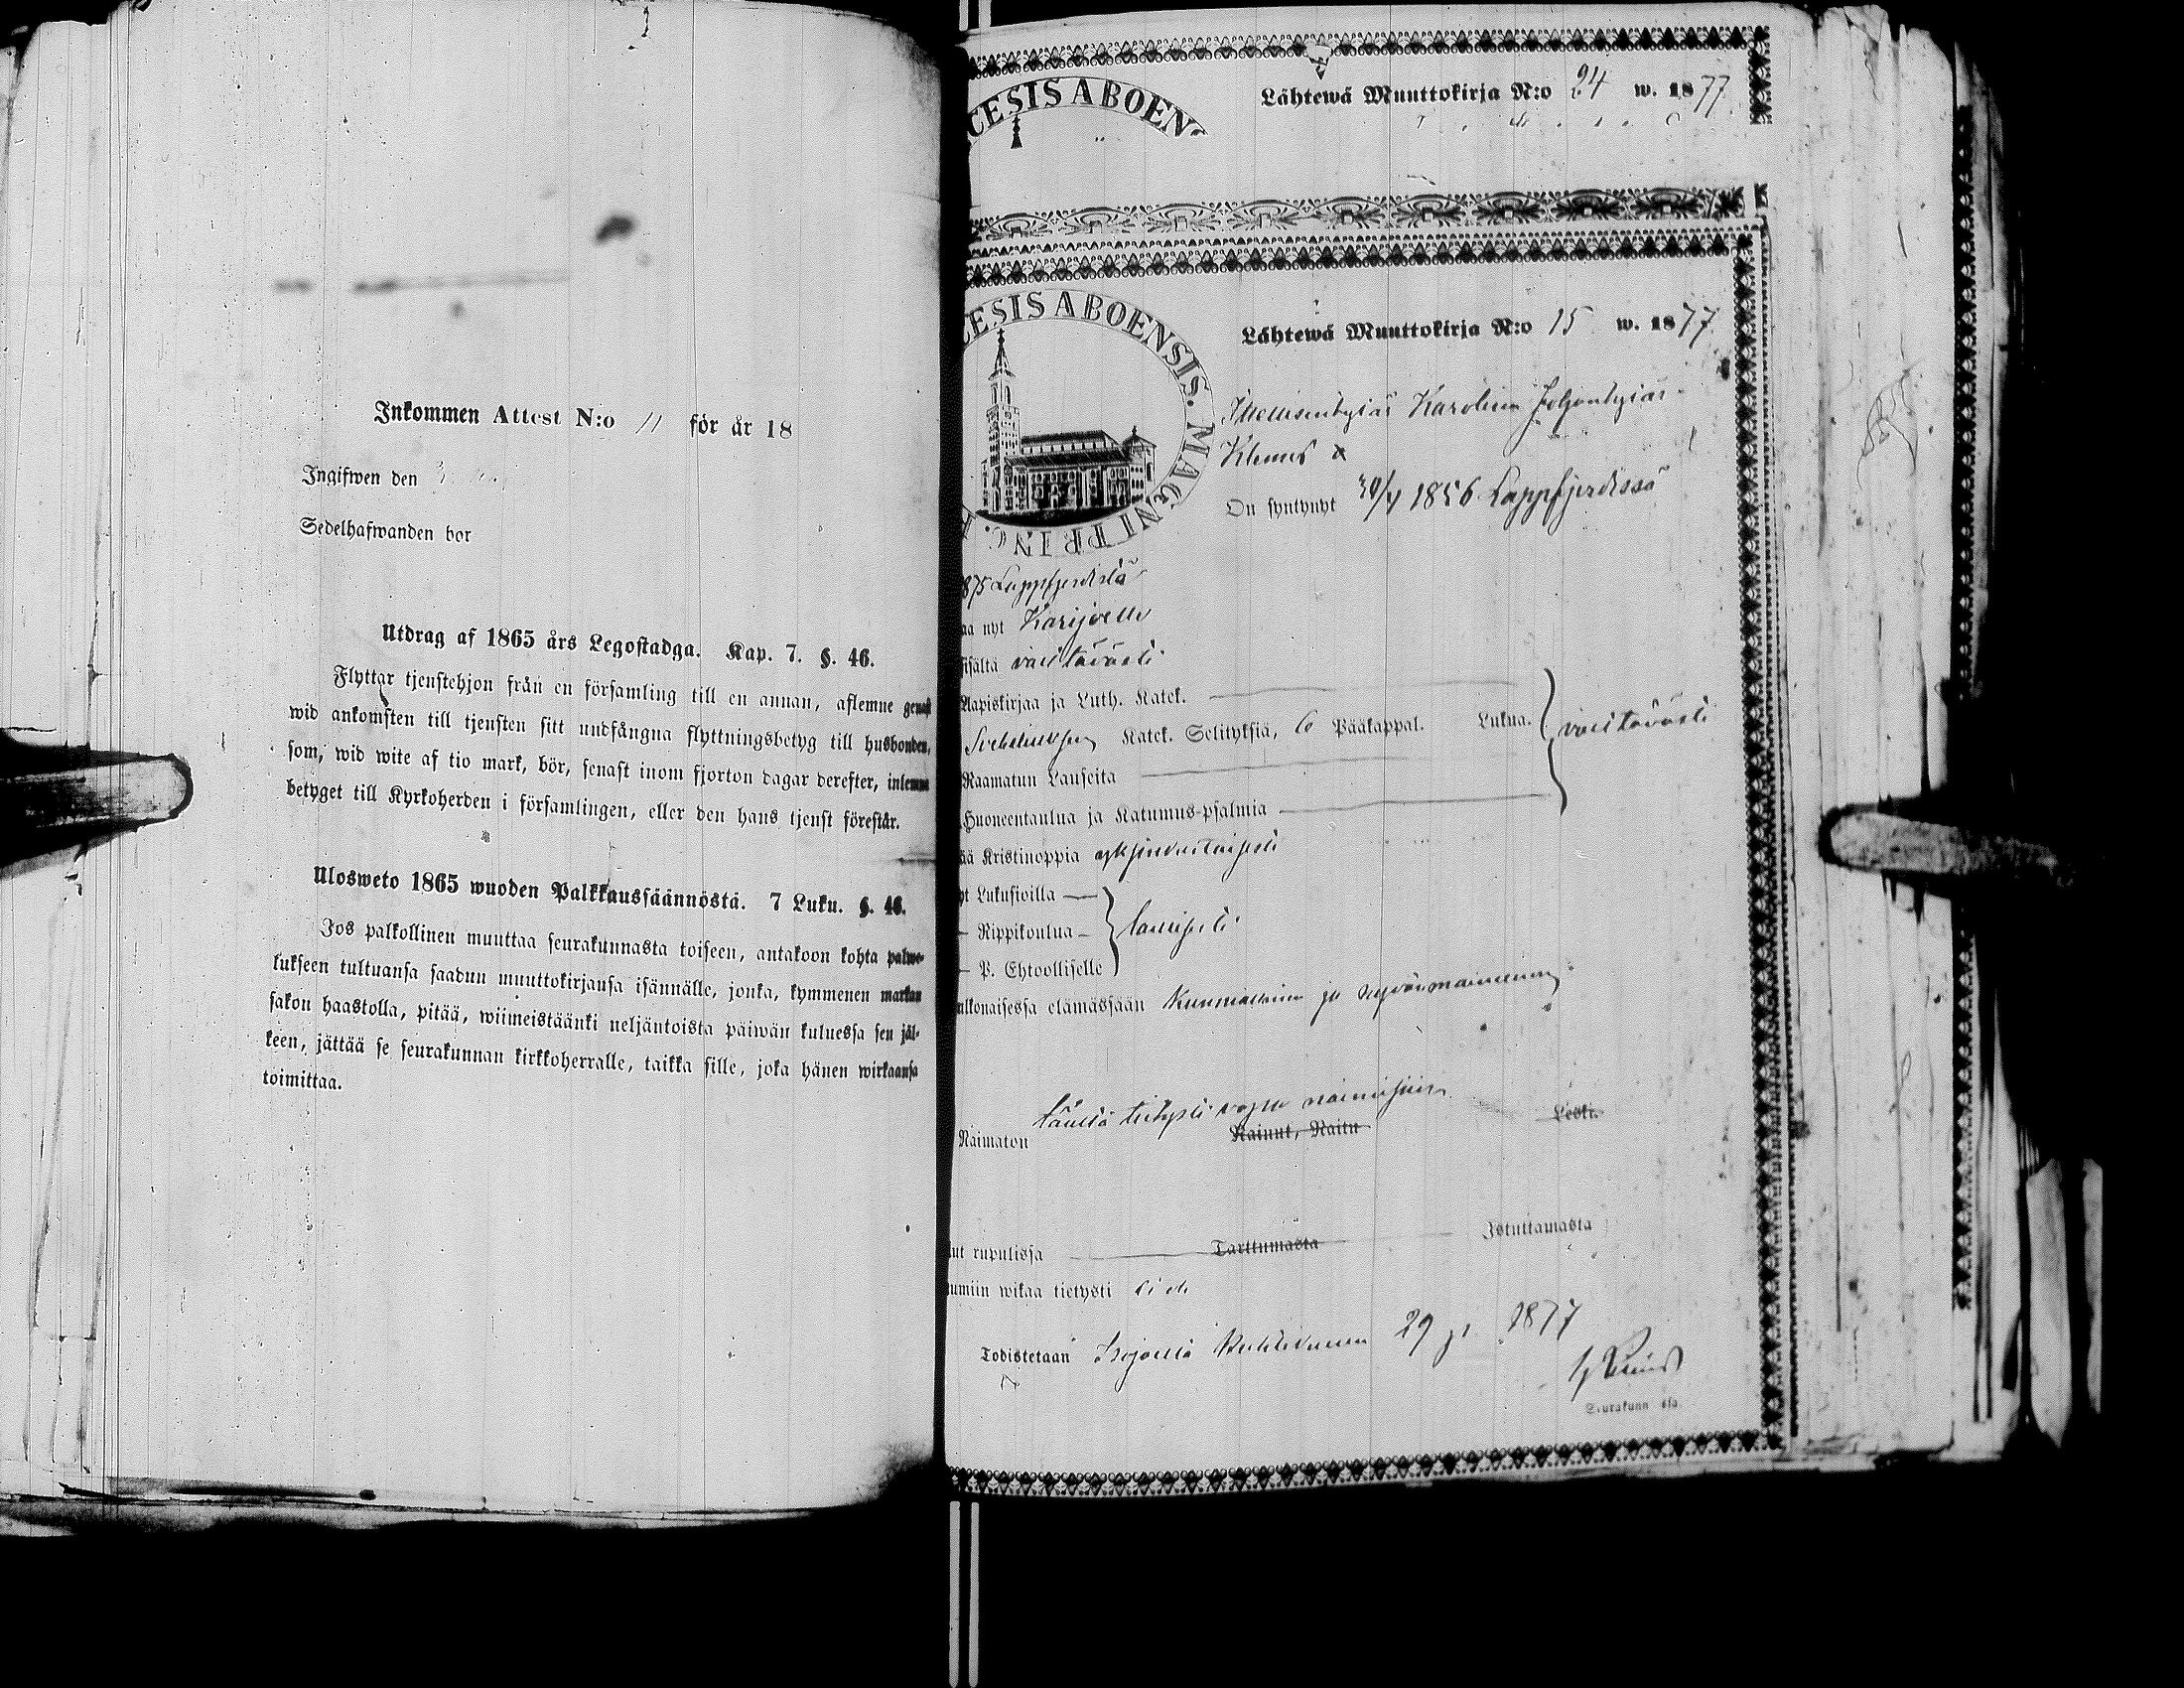 Inkommen Attest N:o 11 för år 18
Ingifwen den 3
Sedelhafwanden bor
Utdrag af 1865 års Legostadga. Kap. 7. §. 46.
Flyttar tjenstehjon från en församling till en annan, aflemne genast
wid ankomsten till tjensten sitt undfångna flyttningsbetyg till husbonden,
som, wid wite af tio mark, bör, senast inom fjorton dagar derefter, inlemna
betyget till Kyrkoherden i församlingen, eller den hans tjenst förestår.
Ulosweto 1865 wuoden Palkkaussäännöstä. 7 Luku. §. 46.
Jos palkollinen muuttaa seurakunnasta toiseen, antakoon kohta palwe-
lukseen tultuansa saadun muuttokirjansa isännälle, jonka, kymmenen markan
sakon haastolla, pitää, wiimeistäänki neljäntoista päiwän kuluessa sen jäl-
keen, jättää se seurakunnan kirkkoherralle, taikka sille, joka hänen wirkaansa
toimittaa.
CESIS ABOEN
Lähtewä Muuttokirja N:o 24 w. 1877
CESIS ABOENSIS. MAGNI PRINC.
Lähtewä Muuttokirja N:o 15 w. 1877
Itsellisentytär Karolina Johontytär
Klemes
On syntynyt 30/4 1856 Lappfjerdissä
875 Lappfjerdistä
aa nyt Karijoelle
sisältä välttävästi
Aapiskirjaa ja Luth. Katek.
Svebeliuksen Katek. Selityksiä, 6 Pääkappal. Lukua. välttävästi
Raamatun Lauseita
Huoneentaulua ja Katumus-psalmia
ää Kristinoppia yksinkertaisesti
yt Lukusioilla
Rippikoulua laillisesti
P. Ehtoolliselle
ulkonaisessa elämässään kunniallinen ja hyvänmaineinen
täällä tietysti vapaa naimiseen
Naimaton Nainut, Naitu Leski.
ut rupulissa Tarttumasta Istuttamasta
umiin wikaa tietysti ei ole
Todistetaan Isojoella Huhtikuun 29 p. 1877
Seurakunn